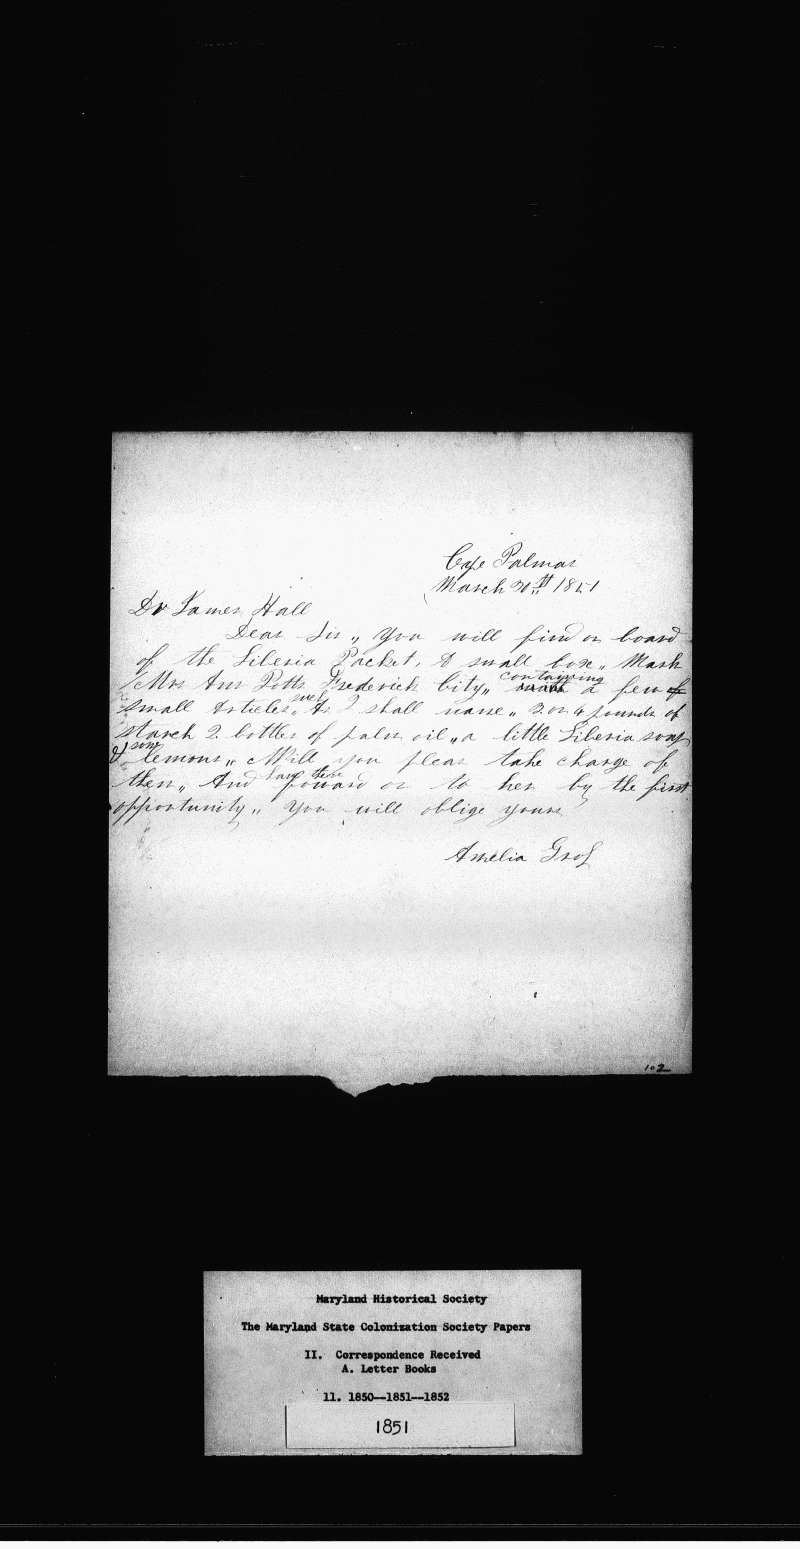 Cape Palmas
March 30th 1851
Dr James Hall
Dear Sir,, You will find on board
of the Liberia Packet, A small box,, Mark
Mrs Ann Potts Frederick City,, containing a few of
small Articles,, such As I shall name,, 3 or 4 pounds of
starch 2 bottles of palm oil,, a little Liberia soap
& some lemons,, Will you pleas take charge of
them,, And have them foward on to her by the first
opportunity,, You will oblige yours
Amelia Gross
102
Maryland Historical Society
The Maryland State Colonization Society Papers
II. Correspondence Received
A. Letter Books
11. 1850--1851--1852
1851